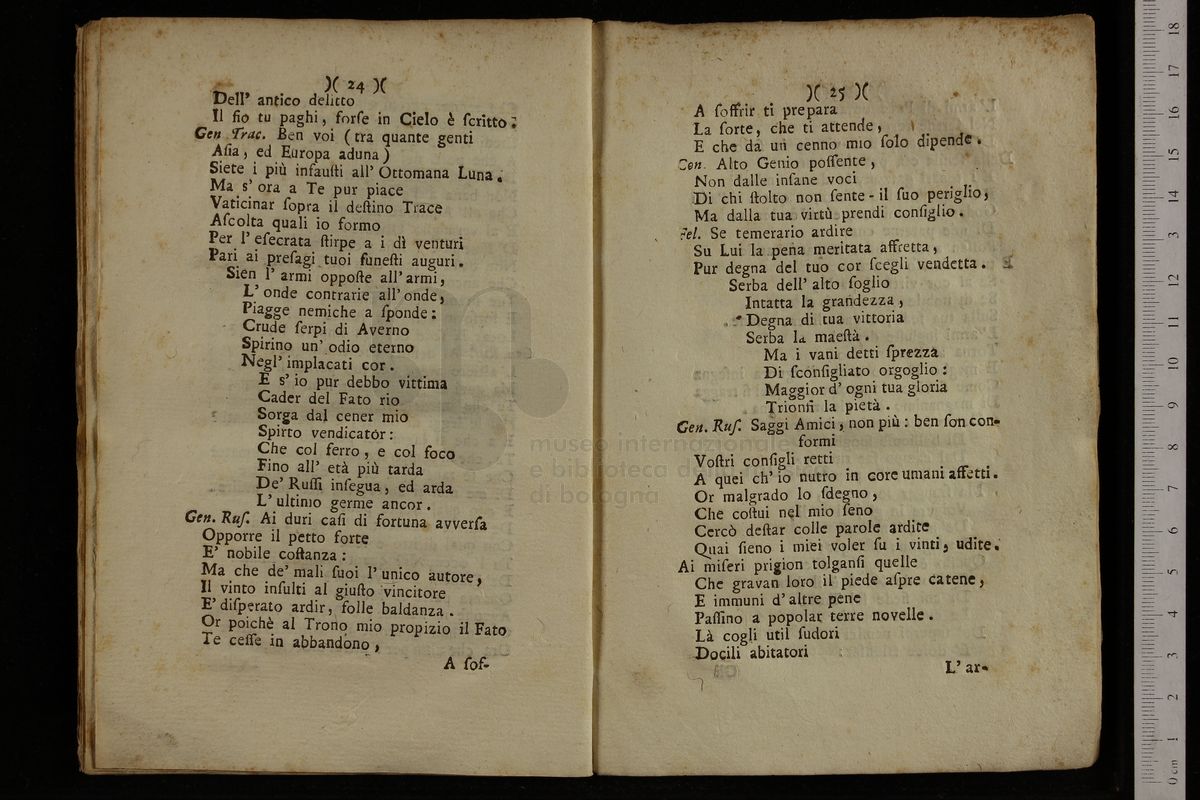 )( 24 )(
Dell' antico delitto
Il fio tu paghi, forſe in Cielo è ſcritto:
Gen Trac. Ben voi (tra quante genti
Aſia, ed Europa aduna)
Siete i più infauſti all' Ottomana Luna.
Ma s' ora a Te pur piace
Vaticinar ſopra il deſtino Trace
Aſcolta quali io formo
Per l' eſecrata ſtirpe a i dì venturi
Pari ai preſagi tuoi funeſti auguri.
Sien l' armi oppoſte all' armi,
L' onde contrarie all' onde,
Piagge nemiche a ſponde:
Crude ſerpi di Averno
Spirino un' odio eterno
Negl' implacati cor.
E s' io pur debbo vittima
Cader del Fato rio
Sorga dal cener mio
Spirto vendicatòr:
Che col ferro, e col foco
Fino all' età più tarda
De' Ruſſi inſegua, ed arda
L' ultimo germe ancor.
Gen. Ruſ. Ai duri caſi di fortuna avverſa
Opporre il petto forte
E' nobile coſtanza:
Ma che de' mali ſuoi l' unico autore,
Il vinto inſulti al giuſto vincitore
E' diſperato ardir, folle baldanza.
Or poichè al Trono mio propizio il Fato
Te ceſſe in abbandono,
A ſof-
)( 25 )(
A ſoffrir ti prepara
La ſorte, che ti attende,
E che da un cenno mio ſolo dipende.
Cen. Alto Genio poſſente,
Non dalle inſane voci
Di chi ſtolto non ſente - il ſuo periglio,
Ma dalla tua virtù prendi conſiglio.
Fel. Se temerario ardire
Su Lui la pena meritata affretta,
Pur degna del tuo cor ſcegli vendetta.
Serba dell' alto ſoglio
Intatta la grandezza,
Degna di tua vittoria
Serba la maeſtà.
Ma i vani detti ſprezza
Di ſconſigliato orgoglio:
Maggior d' ogni tua gloria
Trionfi la pietà.
Gen. Ruſ. Saggi Amici, non più: ben ſon con-
formi
Voſtri conſigli retti
A quei ch' io nutro in core umani affetti.
Or malgrado lo ſdegno,
Che coſtui nel mio ſeno
Cercò deſtar colle parole ardite
Quai ſieno i miei voler ſu i vinti, udite.
Ai miſeri prigion tolganſi quelle
Che gravan loro il piede aſpre catene,
E immuni d' altre pene
Paſſino a popolar terre novelle.
Là cogli util ſudori
Docili abitatori
L' ar-
museo internazionale
e biblioteca della musica
di bologna